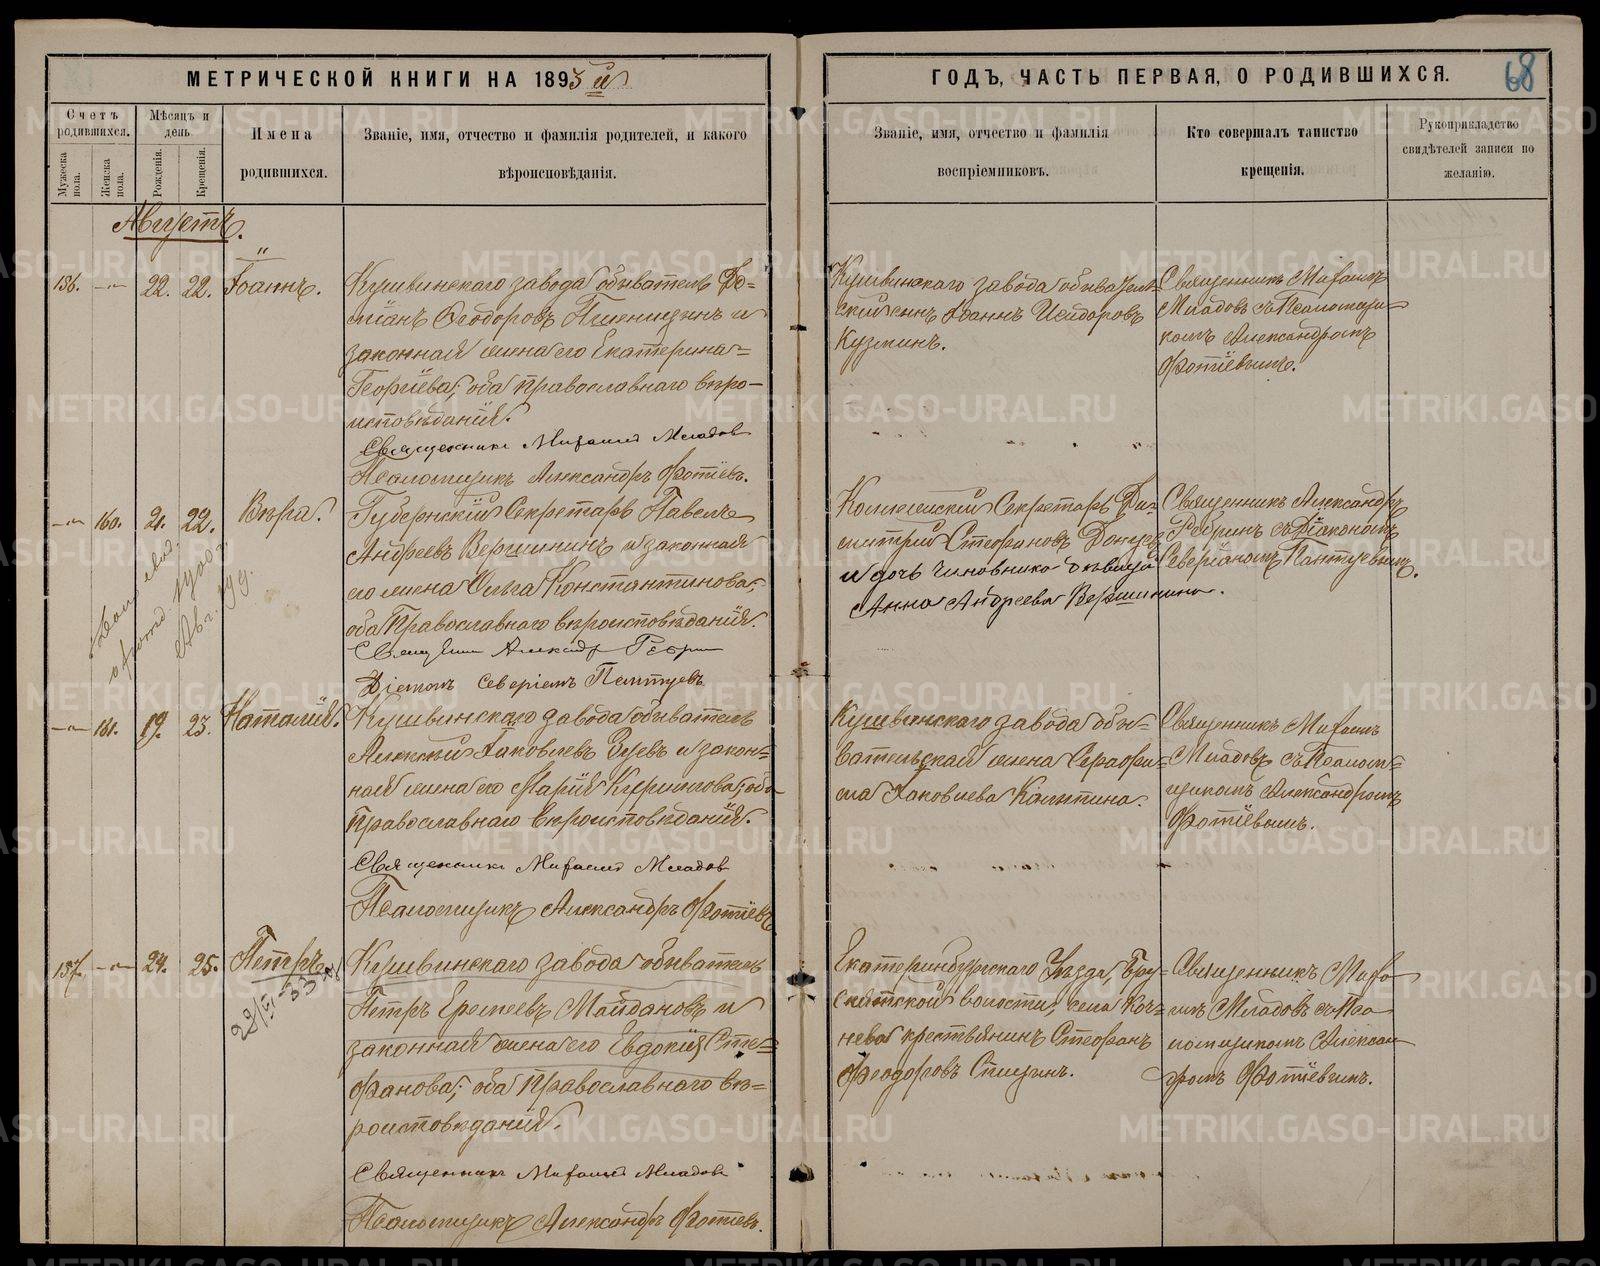 МЕТРИЧЕСКОЙ КНИГИ НА 1893 й
ГОДЪ, ЧАСТЬ ПЕРВАЯ, О РОДИВШИХСЯ.
68
Счетъ родившихся.
Мужеска пола.
Женска пола.
Мѣсяцъ и день
Рожденія.
Крещенія.
Имена
родившихся.
Званіе, имя, отчество и фамилія родителей, и какого
вѣроисповѣданія.
Званіе, имя, отчество и фамилія
воспріемниковъ.
Кто совершалъ таинство
крещенія.
Рукоприкладство
свидѣтелей записи по
желанію.
Августъ.
156. —"— 22. 22. Іоаннъ.
Кушвинскаго завода обыватель До=
міанъ Ѳеодоровъ Пшеницынъ и
законная жена его Екатерина=
Георгіева; оба православнаго вѣро-
исповѣданія.
Священникъ Михаилъ Младовъ
Псаломщикъ Александръ Фотіевъ.
Кушвинскаго завода обыватель=
скій сынъ Іоаннъ Исидоровъ
Кузминъ.
Священникъ Михаилъ
Младовъ съ Псаломщи-
комъ Александромъ
Фотіевымъ.
—"— 160. 21. 22. Вѣра.
Губернскій Секретарь Павелъ
Андреевъ Вершининъ и законная
его жена Ольга Константинова;
оба Православнаго вѣроисповѣданія.
Священникъ Александръ Ребринъ
Діаконъ Северіанъ Пантуевъ
Коллежскій Секретарь Ди-
митрій Стефановъ
и дочь чиновника дѣвица
Анна Андреева Вершинина.
Священникъ Александръ
Ребринъ съ Діакономъ
Северіаномъ Пантуевымъ.
—"— 161. 19. 23. Наталія.
Кушвинскаго завода обыватель
Алексѣй Іаковлевъ Зуевъ и закон=
ная жена его Марія Кириллова; оба
Православнаго вѣроисповѣданія.
Священникъ Михаилъ Младовъ
Псаломщикъ Александръ Фотіевъ
Кушвинскаго завода обы-
вательская жена Серафи=
ма Іаковлева Калитина.
Священникъ Михаилъ
Младовъ съ Псалом=
щикомъ Александромъ
Фотіевымъ.
157. —"— 24. 25. Петръ
Кушвинскаго завода обыватель
Петръ Еремеевъ Майдановъ и
законная жена его Евдокія Сте=
фанова; оба Православнаго вѣ=
роисповѣданія.
Священникъ Михаилъ Младовъ
Псаломщикъ Александръ Фотіевъ.
Екатеринбургскаго Уѣзда Бру-
снятской волости, села Коч-
нева крестьянинъ Стефанъ
Ѳеодоровъ Спицынъ.
Священникъ Миха
илъ Младовъ съ Пса
ломщикомъ Алексан
дромъ Фотіевымъ.
METRIKI.GASO-URAL.RU